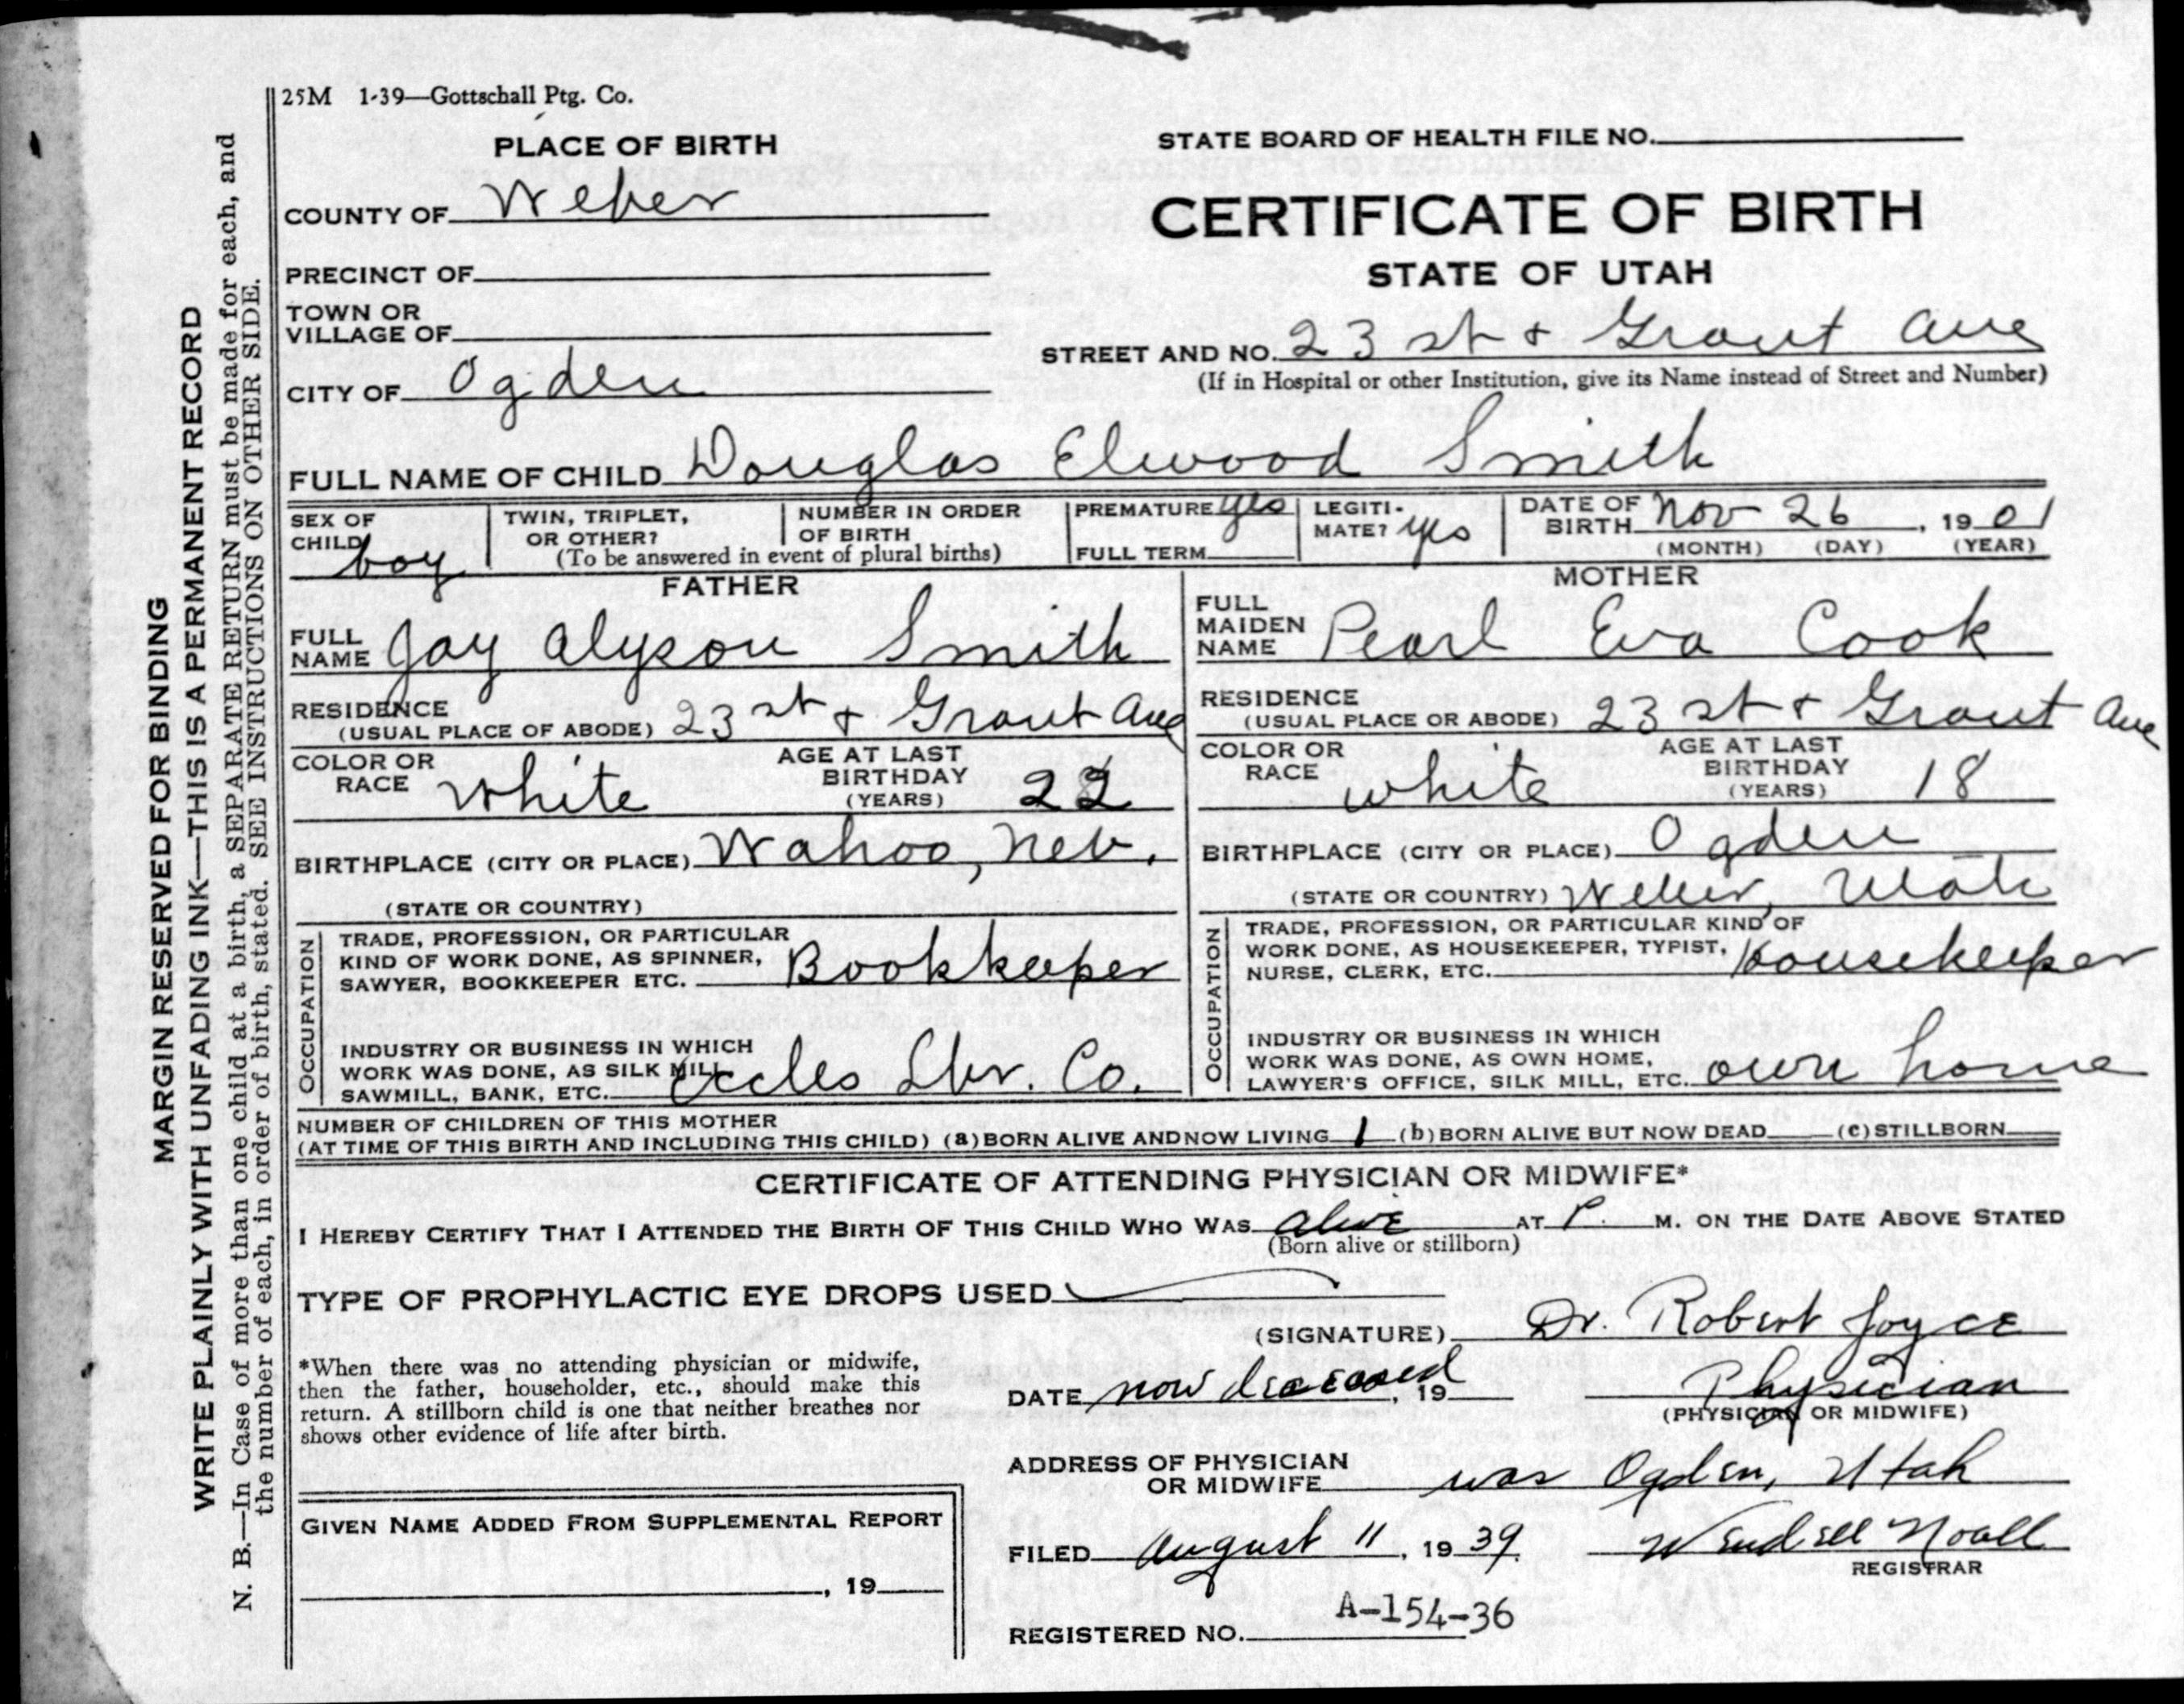 25M 1-39—Gottschall Ptg. Co.
PLACE OF BIRTH
COUNTY OF Weber
PRECINCT OF
TOWN OR
VILLAGE OF
CITY OF Ogden
STATE BOARD OF HEALTH FILE NO.
CERTIFICATE OF BIRTH
STATE OF UTAH
STREET AND NO. 23 st + Grant Ave
(If in Hospital or other Institution, give its Name instead of Street and Number)
FULL NAME OF CHILD Douglas Elwood Smith
SEX OF
CHILD boy
TWIN, TRIPLET,
OR OTHER?
NUMBER IN ORDER
OF BIRTH
(To be answered in event of plural births)
PREMATURE yes
FULL TERM
LEGITI-
MATE? yes
DATE OF
BIRTH Nov 26, 1901
(MONTH) (DAY) (YEAR)
FATHER
FULL
NAME Jay Alyson Smith
RESIDENCE
(USUAL PLACE OF ABODE) 23 st + Grant Ave
COLOR OR
RACE white
AGE AT LAST
BIRTHDAY
(YEARS) 22
BIRTHPLACE (CITY OR PLACE) Wahoo, Neb.
(STATE OR COUNTRY)
OCCUPATION
TRADE, PROFESSION, OR PARTICULAR
KIND OF WORK DONE, AS SPINNER,
SAWYER, BOOKKEEPER ETC. Bookkeeper
INDUSTRY OR BUSINESS IN WHICH
WORK WAS DONE, AS SILK MILL,
SAWMILL, BANK, ETC. Eccles Lbr. Co.
MOTHER
FULL
MAIDEN
NAME Pearl Eva Cook
RESIDENCE
(USUAL PLACE OR ABODE) 23 st + Grant Ave
COLOR OR
RACE white
AGE AT LAST
BIRTHDAY
(YEARS) 18
BIRTHPLACE (CITY OR PLACE) Ogden
(STATE OR COUNTRY) Weber, Utah
OCCUPATION
TRADE, PROFESSION, OR PARTICULAR KIND OF
WORK DONE, AS HOUSEKEEPER, TYPIST,
NURSE, CLERK, ETC. Housekeeper
INDUSTRY OR BUSINESS IN WHICH
WORK WAS DONE, AS OWN HOME,
LAWYER'S OFFICE, SILK MILL, ETC. own home
NUMBER OF CHILDREN OF THIS MOTHER
(AT TIME OF THIS BIRTH AND INCLUDING THIS CHILD) (a) BORN ALIVE AND NOW LIVING 1 (b) BORN ALIVE BUT NOW DEAD (c) STILLBORN
CERTIFICATE OF ATTENDING PHYSICIAN OR MIDWIFE*
I HEREBY CERTIFY THAT I ATTENDED THE BIRTH OF THIS CHILD WHO WAS alive AT P. M. ON THE DATE ABOVE STATED
(Born alive or stillborn)
TYPE OF PROPHYLACTIC EYE DROPS USED
*When there was no attending physician or midwife,
then the father, householder, etc., should make this
return. A stillborn child is one that neither breathes nor
shows other evidence of life after birth.
(SIGNATURE) Dr. Robert Joyce
DATE now deceased, 19 Physician
(PHYSICIAN OR MIDWIFE)
ADDRESS OF PHYSICIAN
OR MIDWIFE was Ogden, Utah
GIVEN NAME ADDED FROM SUPPLEMENTAL REPORT
, 19
FILED August 11, 1939. Wendell Noall
REGISTRAR
REGISTERED NO. A-154-36
MARGIN RESERVED FOR BINDING
WRITE PLAINLY WITH UNFADING INK—THIS IS A PERMANENT RECORD
N. B.—In Case of more than one child at a birth, a SEPARATE RETURN must be made for each, and
the number of each, in order of birth, stated. SEE INSTRUCTIONS ON OTHER SIDE.